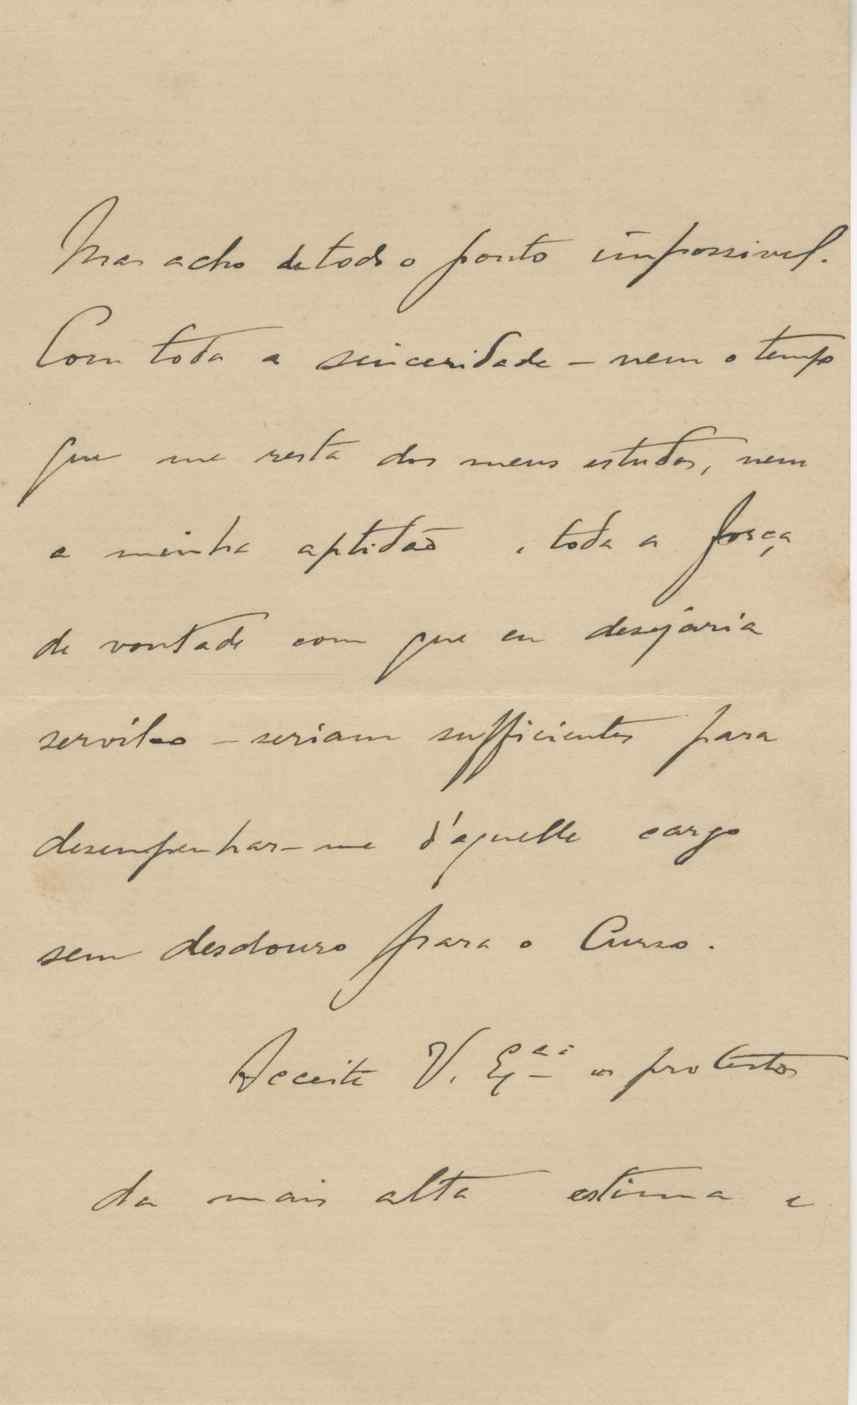 Mas acho de todo o ponto impossivel.
Com toda a sinceridade – nem o tempo
que me resta dos meus estudos, nem
a minha aptidão, toda a força
de vontade com que eu desejaria
servil-o – seriam sufficientes para
desempenhar-me d'aquelle cargo
sem desdouro para o Curso.
Acceite V. Ex.cia os protestos
da mais alta estima e